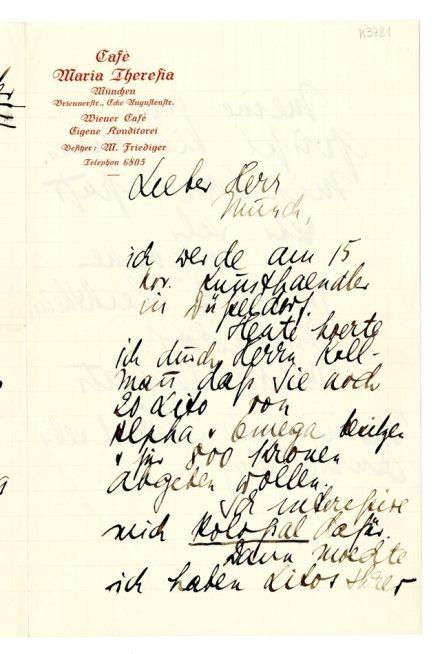 K3781
Café
Maria Theresia
München
Briennerstr., Ecke Augustenstr.
Wiener Café
Eigene Konditorei
Besitzer: M. Friediger
Telephon 6805
Lieber Herr
Munch,
ich werde am 15
Nov. Kunsthaendler
in Düsseldorf.
Heute hoerte
ich durch Herrn Koll-
mañ daß Sie noch
20 Lito von
Alpha & Omega besitzen
& für 800 Kronen
abgeben wollen.
Ich interessire
mich Kolossal dafür.
Dann moechte
ich haben Litos Ihrer